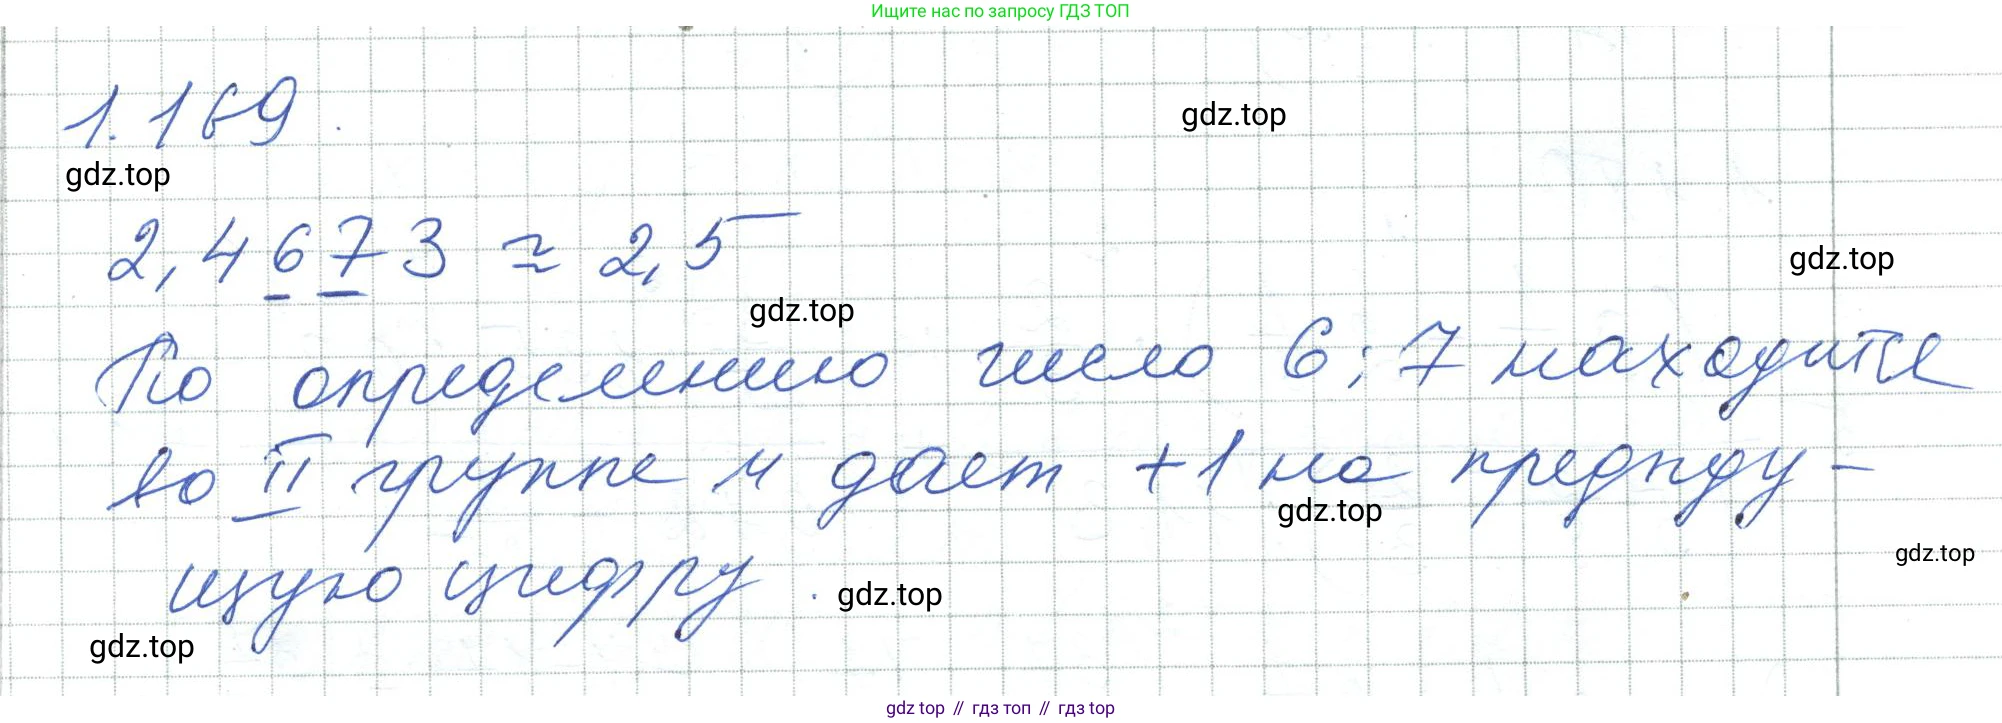 Ищите нас по запросу ГДЗ ТОП
1.169.
gdz.top
gdz.top
2,4673 ≈ 2,5
gdz.top
gdz.top
По определению число 6; 7 находится
во II группе и дает +1 на предыду-
gdz.top
gdz.top
щую цифру.
gdz.top
gdz.top
gdz top // гдз топ // гдз top